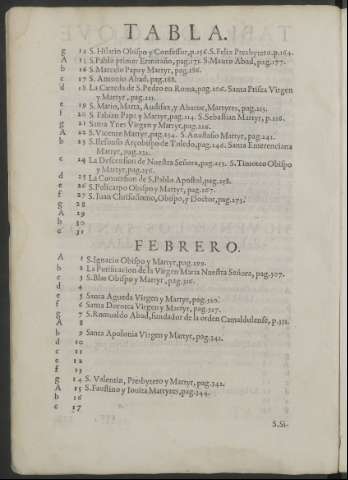 TABLA.
g 14 S. Hilario Obispo y Confessor, p.156. S. Felix Presbytero, p.164.
A 15 S. Pablo primer Ermitaño, pag.171. S. Mauro Abad, pag.177.
b 16 S. Marcelo Papa y Martyr, pag.186.
c 17 S. Antonio Abad, pag.188.
d 18 La Catreda de S. Pedro en Roma, pag. Santa Prisca Virgen
y Martyr, pag.211.
e 19 S. Mario, Marta, Audifax, y Abacuc, Martyres, pag.213.
f 20 S. Fabian Papa y Martyr, pag.214. S. Sebastian Martyr, p.216.
g 21 Santa Ynes Virgen y Martyr, pag.226.
A 22 S. Vicente Martyr, pag.234. S. Anastasio Martyr, pag.241.
b 23 S. Ilefonso Arçobispo de Toledo, pag.246. Santa Emerenciana
Martyr, pag.252.
c 24 La Descension de Nuestra Señora, pag.253. S. Timoteo Obispo
y Martyr, pag.256.
d 25 La Conuersion de S. Pablo Apostol, pag.258.
e 26 S. Policarpo Obispo y Martyr, pag.267.
f 27 S. Iuan Chrisostomo, Obispo, y Doctor, pag.273.
g 28
A 29
b 30
c 31
FEBRERO.
A 1 S. Ignacio Obispo y Martyr, pag.299.
b 2 La Purificacion de la Virgen Maria Nuestra Señora, pag.307.
c 3 S. Blas Obispo y Martyr, pag.316.
d 4
e 5 Santa Agueda Virgen y Martyr, pag.320.
f 6 Santa Dorotea Virgen y Martyr, pag.327.
g 7 S. Romualdo Abad, fundador de la orden Camaldulense, p.331.
A 8
b 9 Santa Apolonia Virgen y Martyr, pag.341.
d 10
c 11
e 12
f 13
g 14 S. Valentin, Presbytero y Martyr, pag.342.
A 15 S. Faustino y Iouita Martyres, pag.344.
b 16
c 17
S. Si-